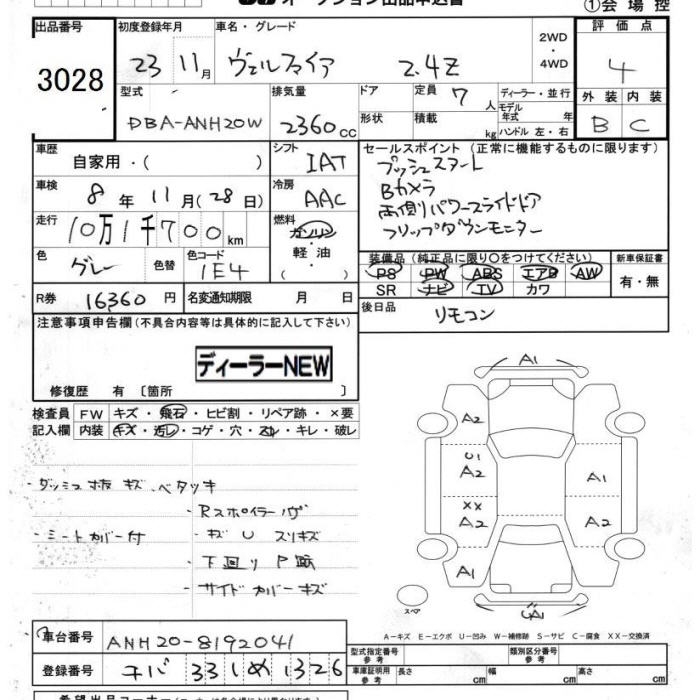 オークション出品申込書
①会場控
出品番号 初度登録年月 車名・グレード 2WD・4WD 評価点
3028 23 11月 ヴェルファイア 2.4Z 4
型式 排気量 ドア 定員 7人 ディーラー・並行 外装 内装
DBA-ANH20W 2360cc 形状 積載 kg モデル年式 年 ハンドル 左・右 B C
車歴 自家用・( ) シフト IAT セールスポイント(正常に機能するものに限ります)
プッシュスタート
車検 8年11月(28日) 冷房 AAC Bカメラ
両側パワースライドドア
走行 10万1千700km 燃料 ガソリン・軽油・( ) フリップダウンモニター
色 グレー 色替 色コード 1E4 装備品(純正品に限り○をつけてください) 新車保証書
PS PW ABS エアB AW 有・無
SR ナビ TV カワ
R券 16360円 名変通知期限 月 日 後日品 リモコン
注意事項申告欄(不具合内容等は具体的に記入して下さい)
ディーラーNEW
修復歴 有〔箇所 〕
検査員 FW キズ・飛石・ヒビ割・リペア跡・×要
記入欄 内装 キズ・汚レ・コゲ・穴・スレ・キレ・破レ
A1
A2
U1
A2 A1
XX
A2 A2
A1
スペア
CA1
・ダッシュ
キズ ベタツキ
・Rスポイラー
・シートカバー付 ・キズ U スリキズ
・下回り
・サイドカバーキズ
A-キズ E-エクボ U-凹み W-補修跡 S-サビ C-腐食 XX-交換済
車台番号 ANH20-8192041 型式指定番号 参考 類別区分番号 参考
登録番号 チバ 331 め 1326 車庫証明用 参考 長さ cm 幅 cm 高さ cm